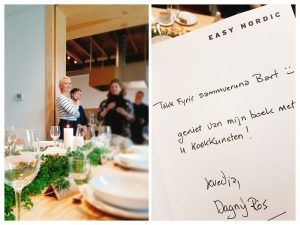 EASY NORDIC
Takk fyrir samveruna Bart
geniet van mijn boek met
u kookkunsten!
kveðja,
Dagný Rós